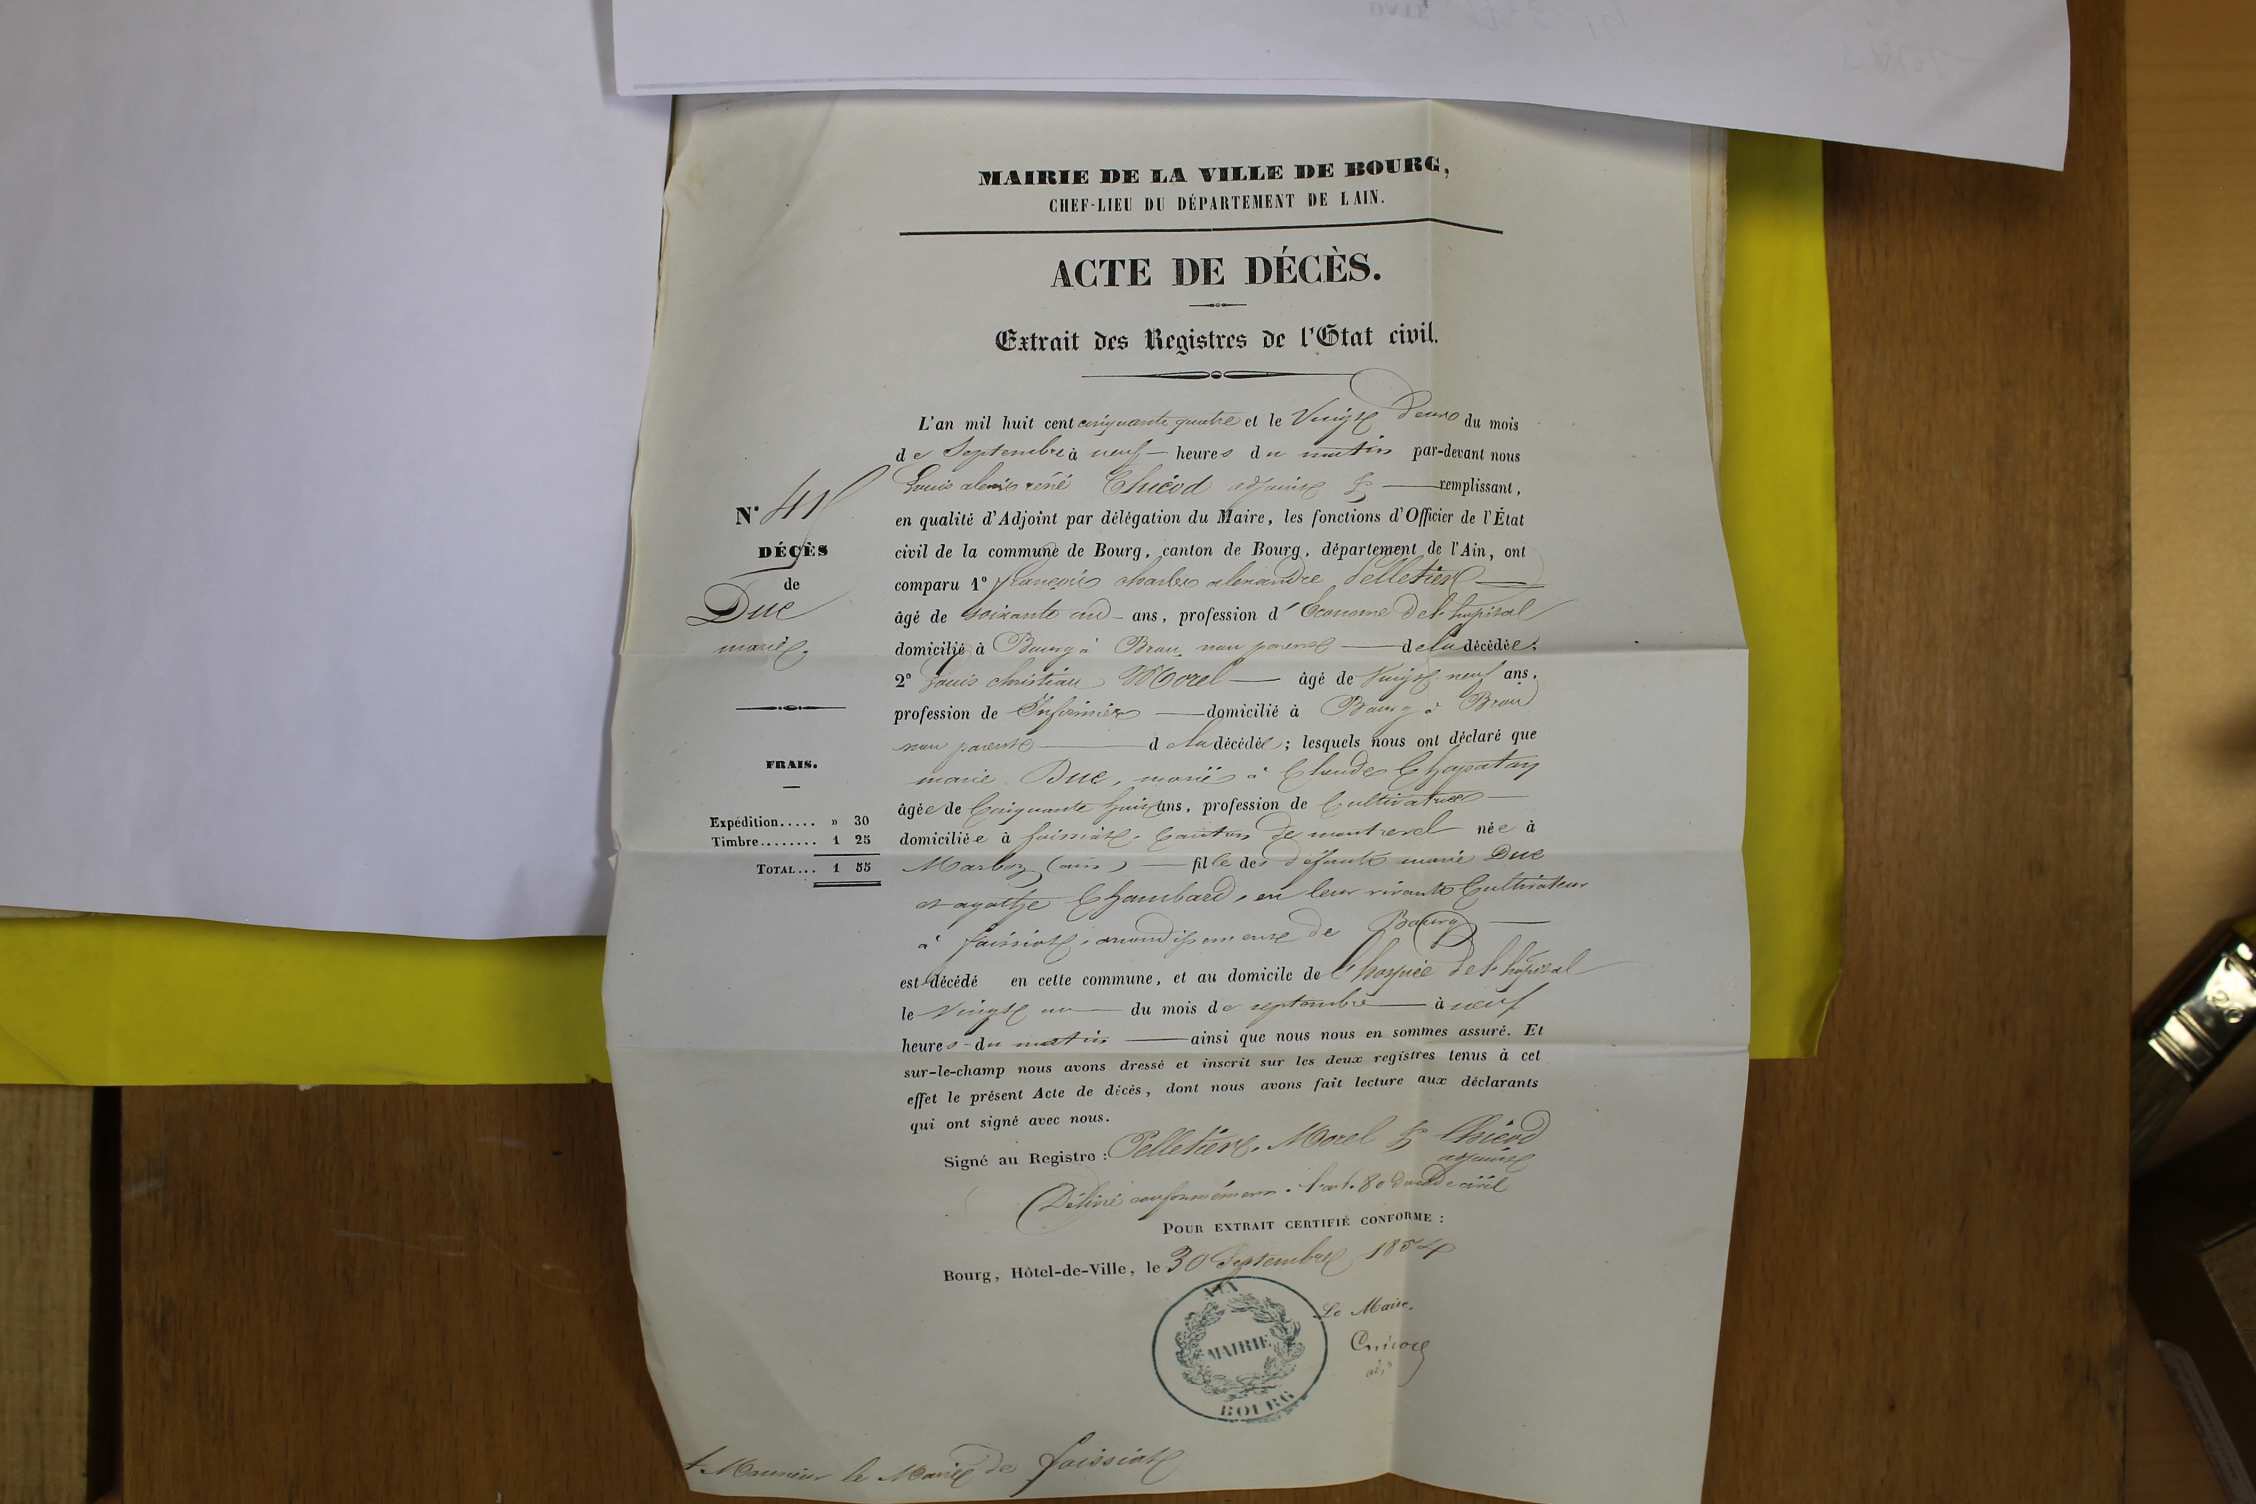 MAIRIE DE LA VILLE DE BOURG,
CHEF-LIEU DU DÉPARTEMENT DE L'AIN.
ACTE DE DÉCÈS.
Extrait des Registres de l'Etat civil.
L'an mil huit cent cinquante quatre et le Vingt Deux du mois
de Septembre à neuf heures du matin par-devant nous
Louis alexis réné Chicod adjoint remplissant,
en qualité d'Adjoint par délégation du Maire, les fonctions d'Officier de l'État
civil de la commune de Bourg, canton de Bourg, département de l'Ain, ont
comparu 1° françois charles alexandre Pelletier
âgé de soixante un ans, profession d'Econome de l'hôpital
domicilié à Bourg à Brou non parent de la décédée.
2° Louis christian Morel âgé de Vingt neuf ans.
profession de Infirmier domicilié à Bourg à Brou
non parent de la décédée; lesquels nous ont déclaré que
marie Duc, mariée à Claude Chapatan
âgée de Cinquante huit ans, profession de Cultivatrice
domiciliée à foissiat, Canton de montrevel née à
Marboz (ain) fille des défunts marie Duc
et agathe Chambard, en leur vivant Cultivateur
à foissiat, arrondissement de Bourg
est décédé en cette commune, et au domicile de l'hospice de l'hôpital
le Vingt un du mois de septembre à neuf
heures du matin ainsi que nous nous en sommes assuré. Et
sur-le-champ nous avons dressé et inscrit sur les deux registres tenus à cet
effet le présent Acte de décès, dont nous avons fait lecture aux déclarants
qui ont signé avec nous.
Signé au Registre: Pelletier, Morel & Chicod
adjoint
Délivré conformément à l'art. 80 du code civil
POUR EXTRAIT CERTIFIÉ CONFORME:
Bourg, Hôtel-de-Ville, le 30 Septembre 1854
Le Maire.
Chicod
adj
AIN
MAIRIE
BOURG
N°
DÉCÈS
de
Duc
marie.
FRAIS.
Expédition..... » 30
Timbre........ 1 25
TOTAL... 1 55
A Monsieur le Maire de foissiat